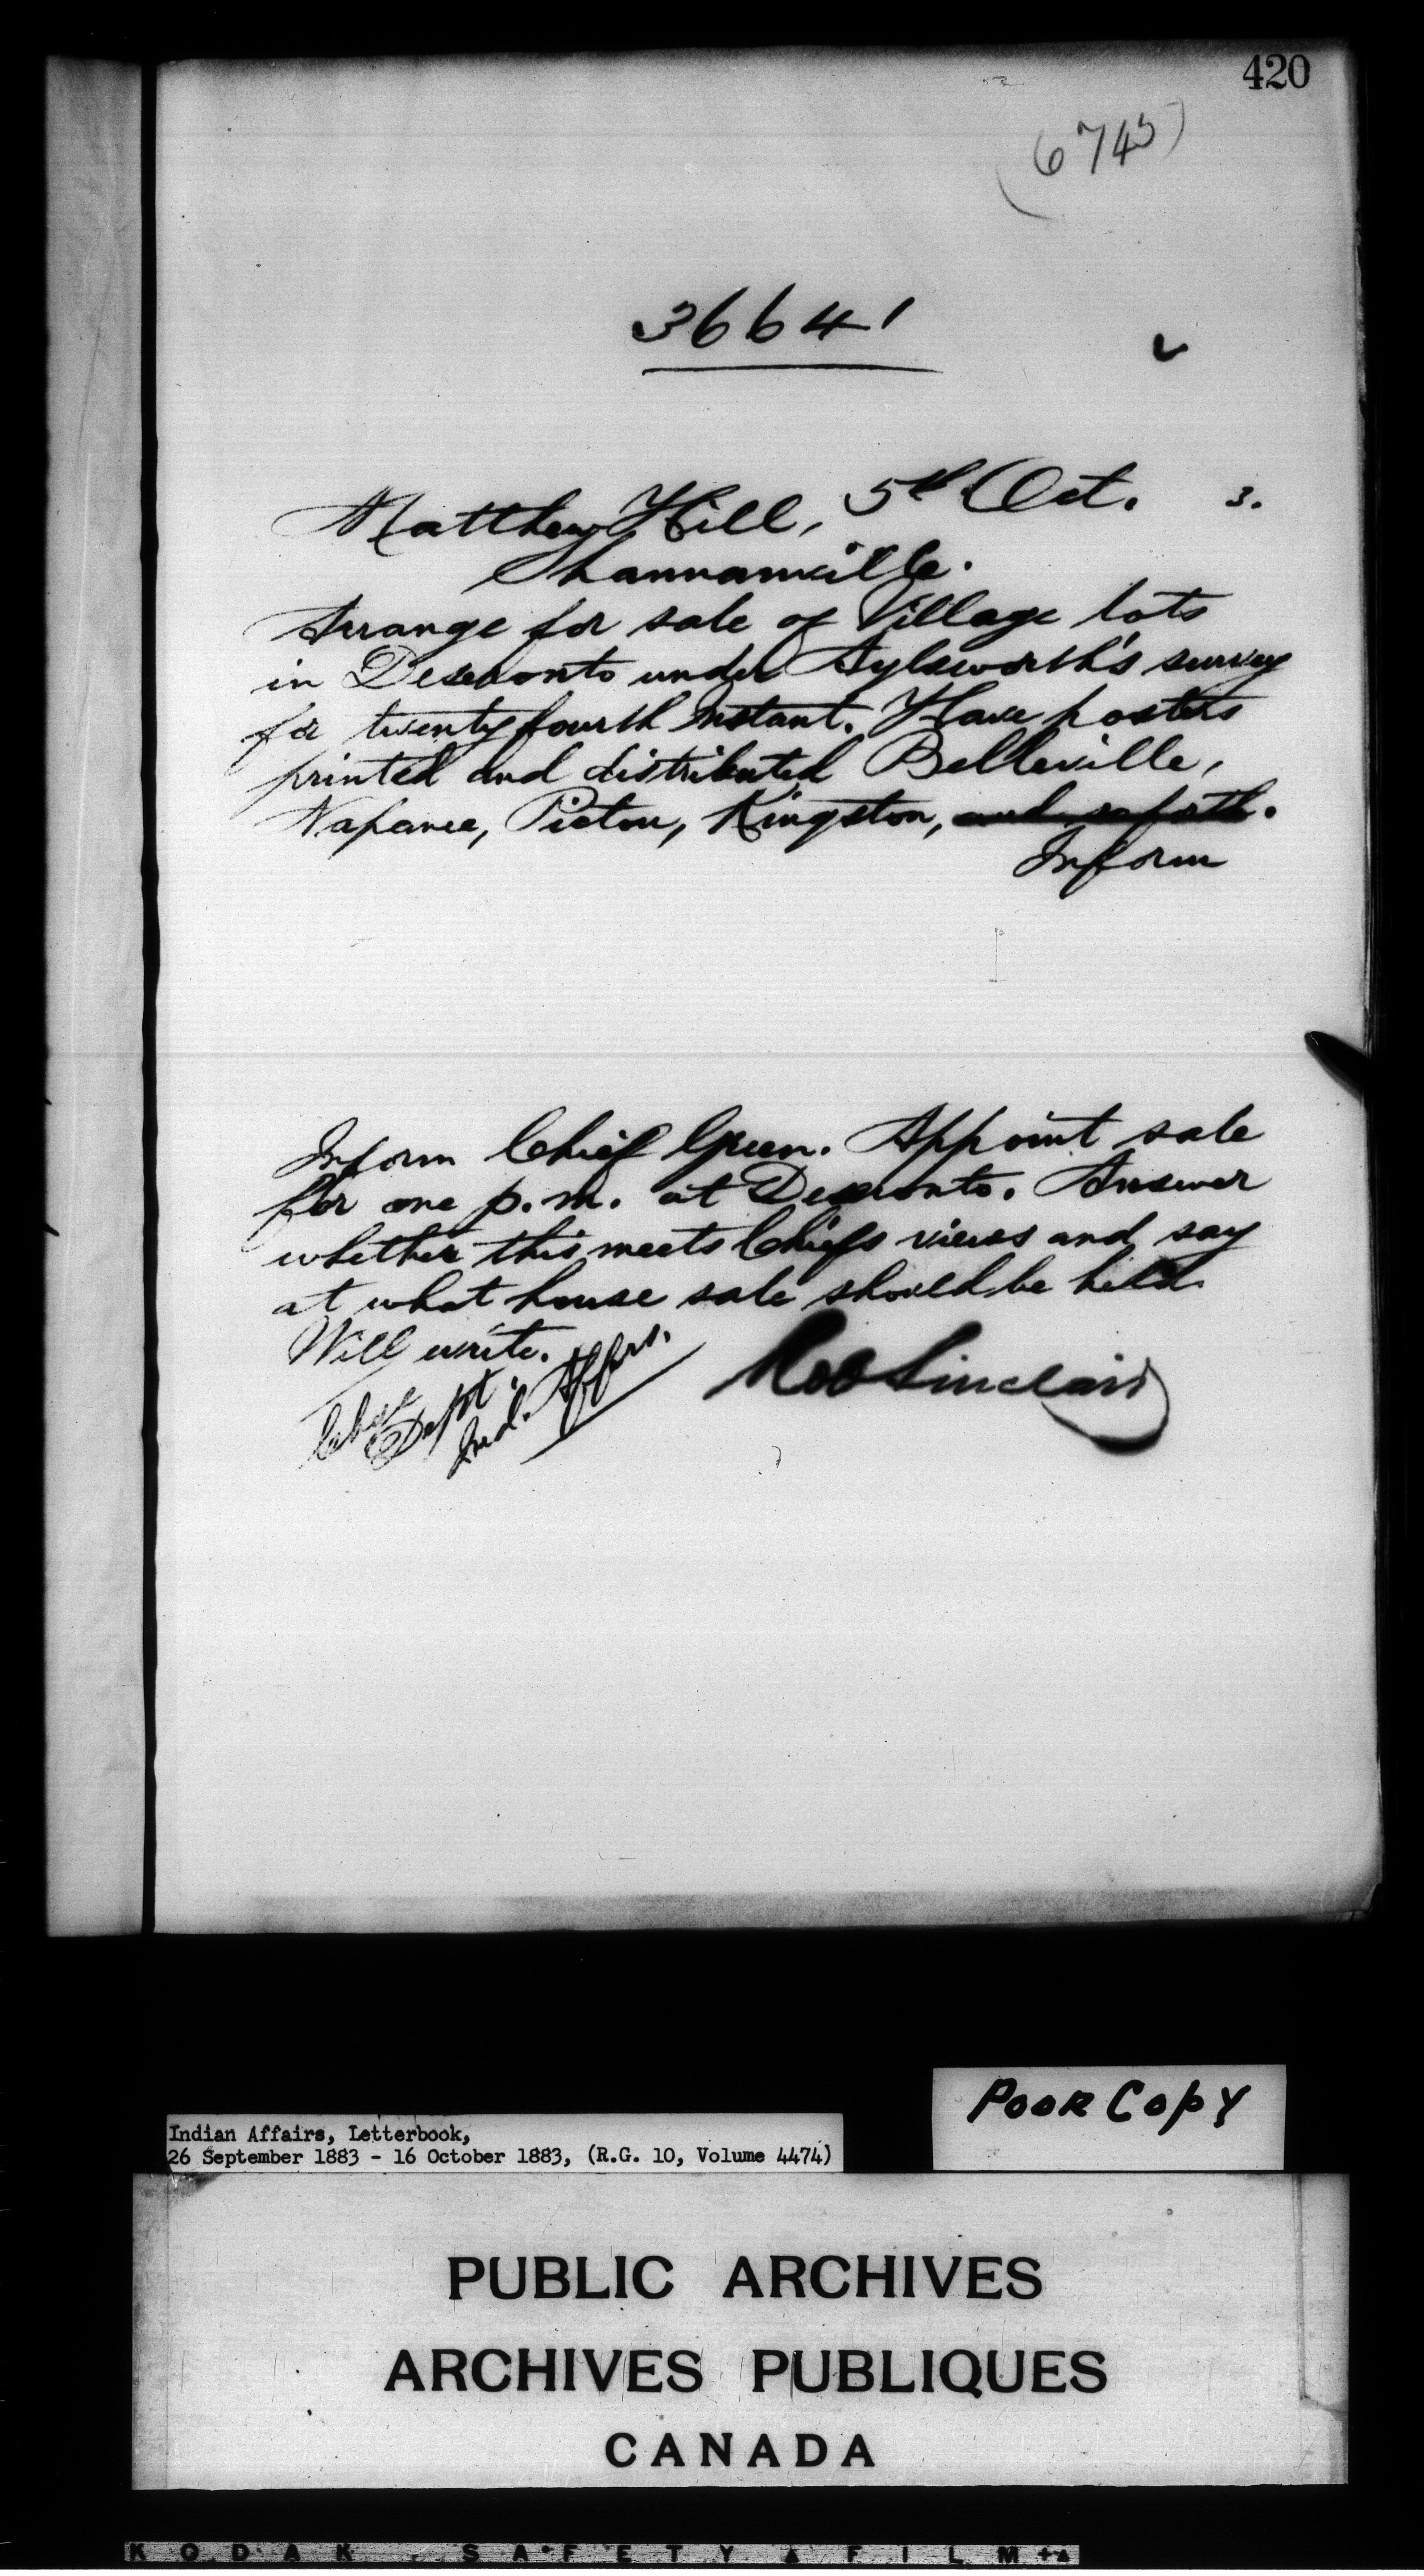 420
(6745)
36641
5th Oct. 3.
Matthew Hill,
Shannanville.
Arrange for sale of Village lots
in Deseronto under Aylsworth's survey
for twenty fourth instant. Have posters
printed and distributed Belleville,
Napanee, Picton, Kingston, and so forth.
Inform
Inform Chief Green. Appoint sale
for one p.m. at Deseronto. Answer
whether this meets Chiefs views and say
at what house sale should be held.
Will write.
Robt Sinclair
Chge
Dept.
Ind. Affairs.
Poor Copy
Indian Affairs, Letterbook,
26 September 1883 - 16 October 1883, (R.G. 10, Volume 4474)
PUBLIC ARCHIVES
ARCHIVES PUBLIQUES
CANADA
KODAK SAFETY FILM